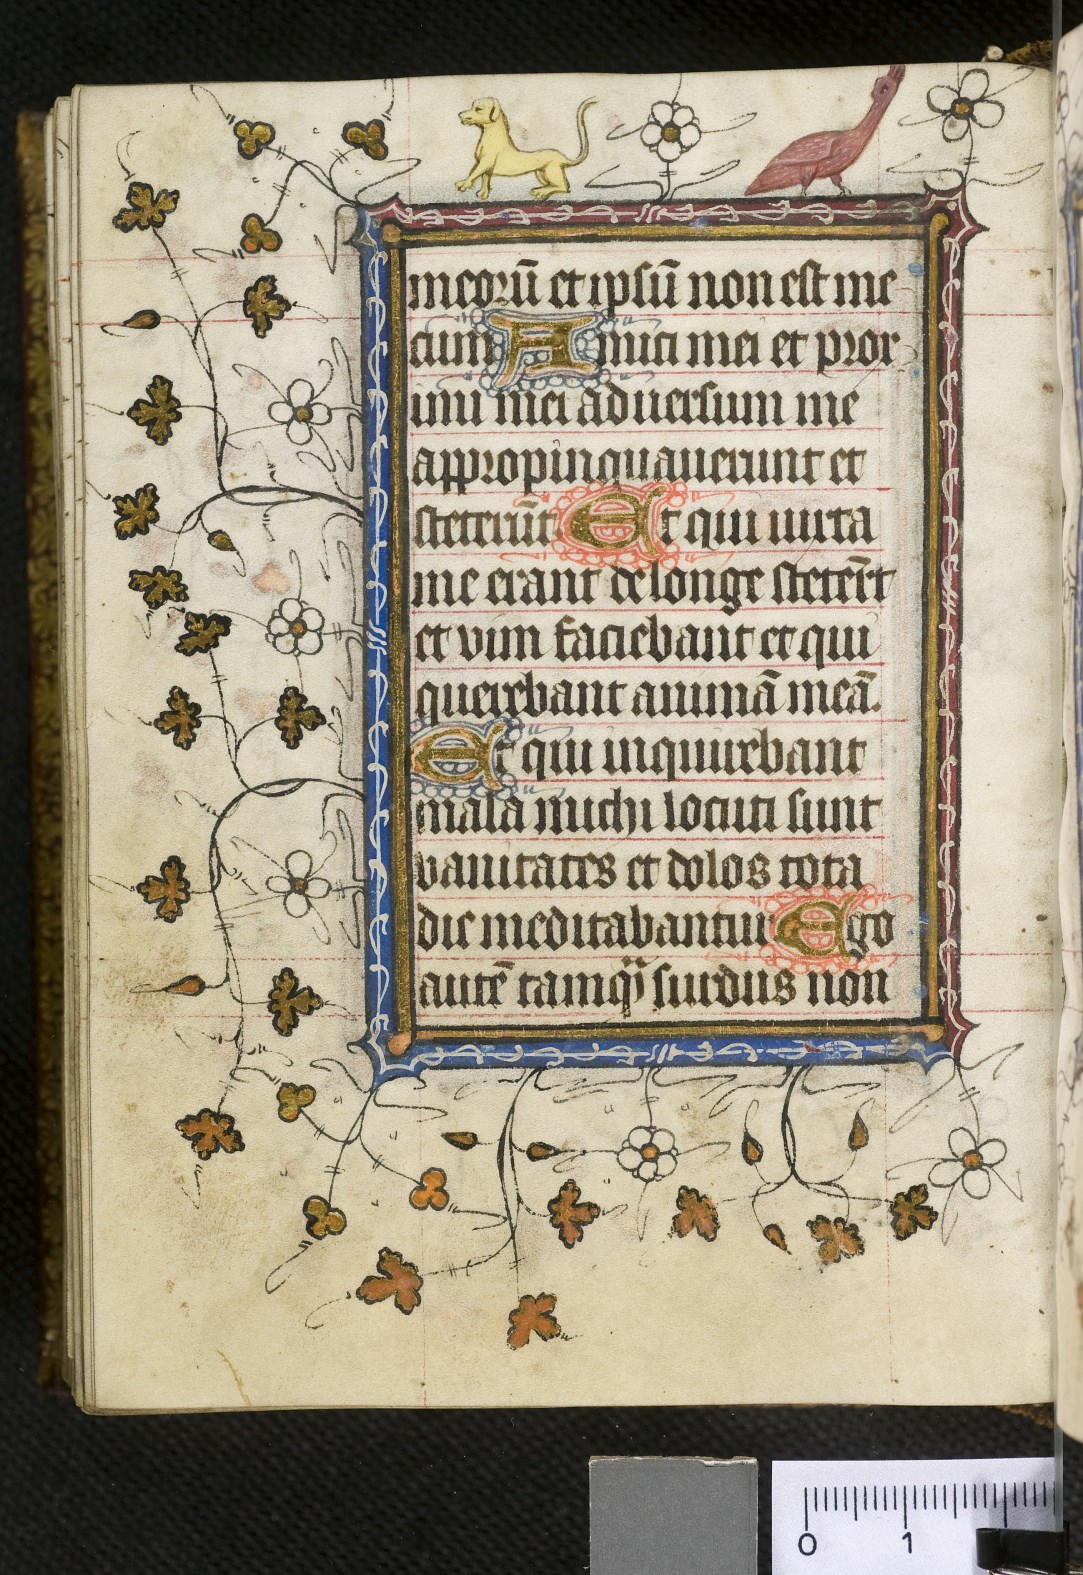 meorū et ipsū non est me
cum Amici mei et prox
imi mei aduersum me
appropinquauerunt et
steterūt Et qui iuxta
me erant de longe steter̄t
et vim faciebant et qui
querebant animā meā.
Et qui inquirebant
mala michi locuti sunt
vanitates et dolos tota
die meditabantur Ego
autē tamq̄ surdus non
0 1